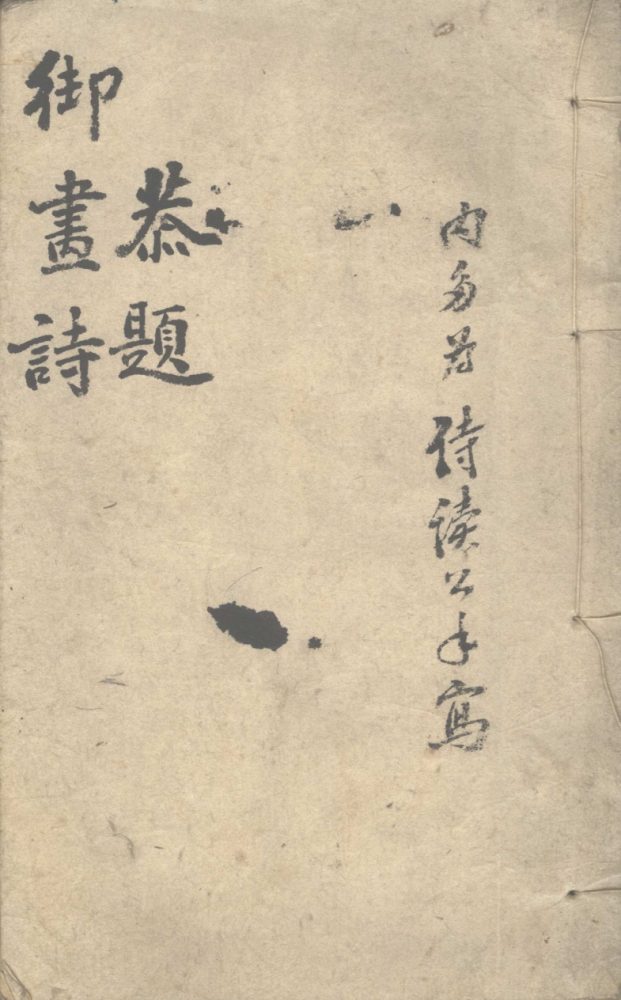 內多為侍讀公手寫
恭題
御畫詩